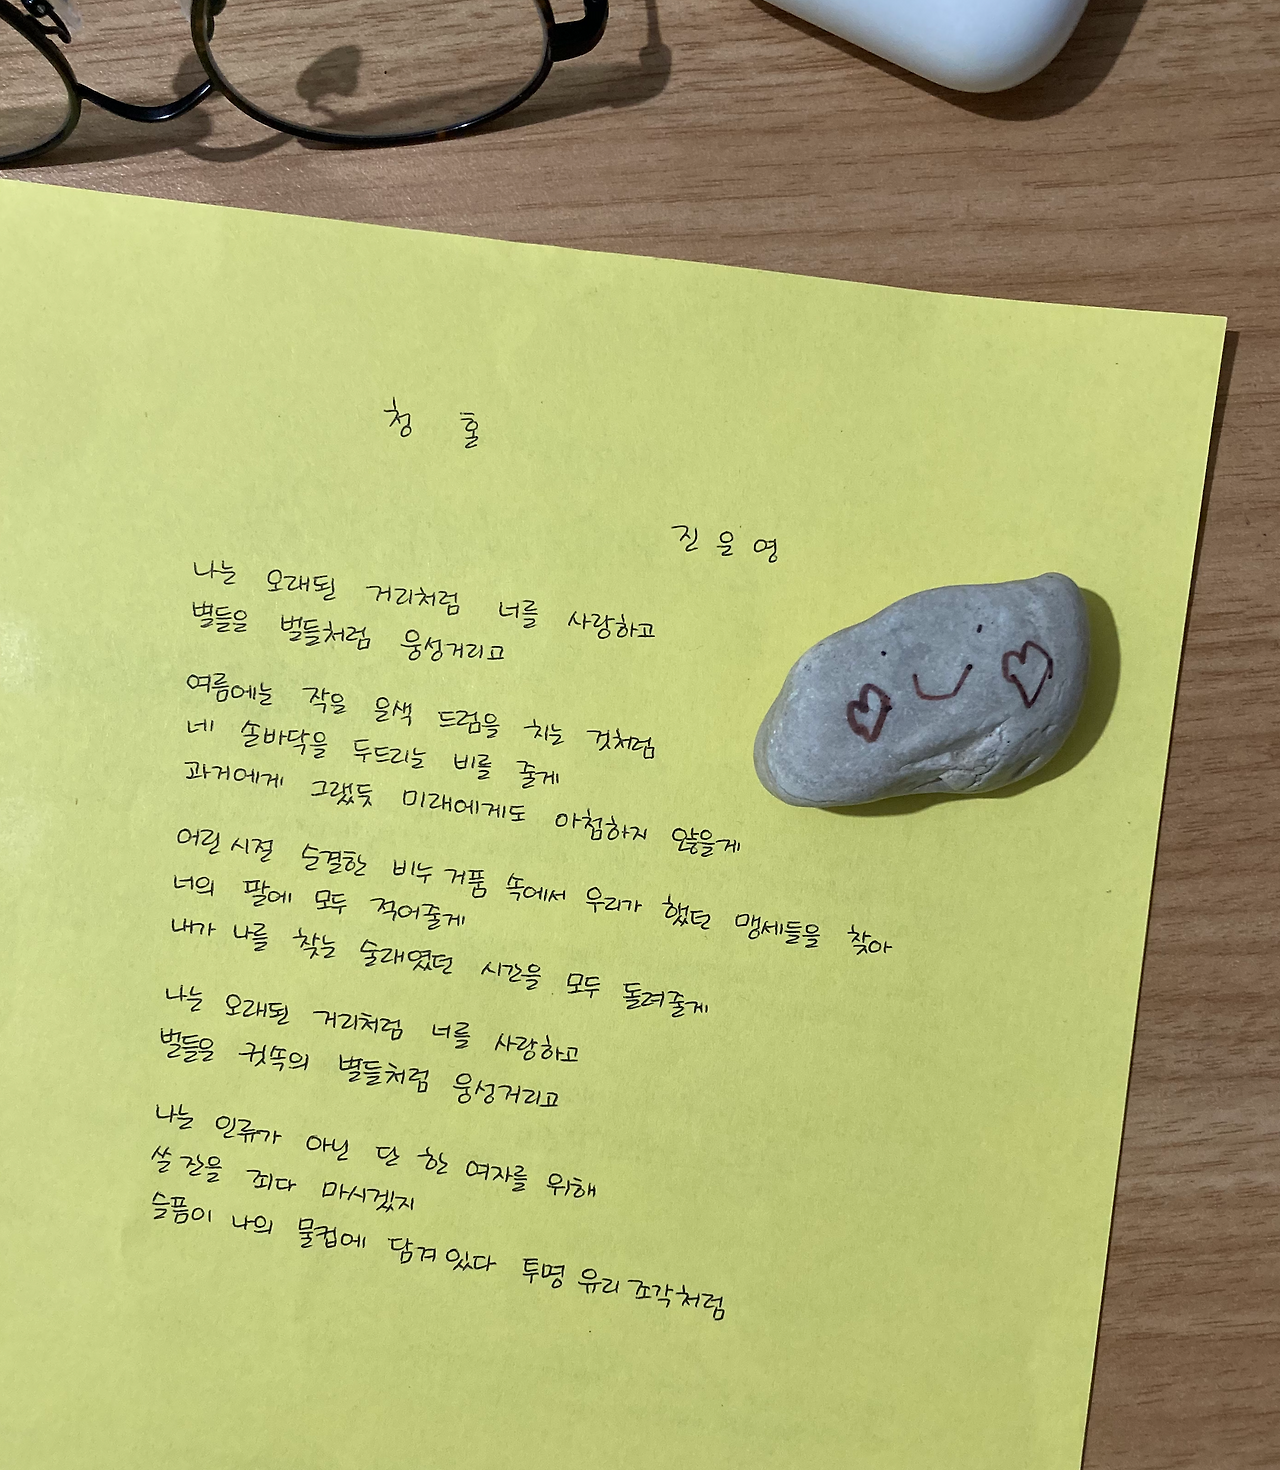 청 혼
진 은 영
나는 오래된 거리처럼 너를 사랑하고
별들을 벌들처럼 웅성거리고
여름에는 작은 은색 드럼을 치는 것처럼
네 손바닥을 두드리는 비를 줄게
과거에게 그랬듯 미래에게도 아첨하지 않을게
어린 시절 순결한 비누 거품 속에서 우리가 했던 맹세들을 찾아
너의 팔에 모두 적어줄게
내가 나를 찾는 술래였던 시간을 모두 돌려줄게
나는 오래된 거리처럼 너를 사랑하고
벌들을 귓속의 별들처럼 웅성거리고
나는 인류가 아닌 단 한 여자를 위해
쓸 잔을 죄다 마시겠지
슬픔이 나의 물컵에 담겨 있다 투명 유리 조각처럼